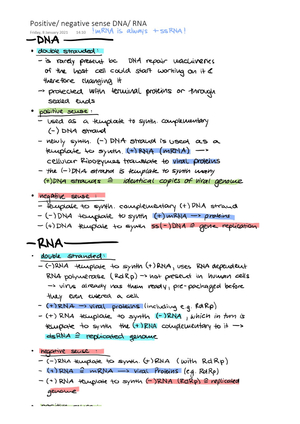 Positive/ negative sense DNA/ RNA
Friday, 8 January 2021 14:10 !mRNA is always + ssRNA!
DNA
• double stranded:
- is rarely present bc DNA repair machineries
of the host cell could start working on it &
therefore changing it
→ protected with terminal proteins or through
sealed ends
• positive sense:
- used as a template to synth. complementary
(-) DNA strand
- newly synth. (-) DNA strand is used as a
template to synth. (+) RNA (mRNA) →
cellular Ribozymes translate to viral proteins
- the (-)DNA strand is template to synth many
(+)DNA strands ≙ identical copies of viral genome
• negative sense:
- template to synth. complementary (+)DNA strand
- (-)DNA template to synth (+)mRNA → proteins
- (+)DNA template to synth ss(-)DNA ≙ gene replication
RNA
• double stranded:
- (-)RNA template to synth (+)RNA, uses RNA dependent
RNA polymerase (RdRp) → not present in human cells
→ virus already has them ready, pre-packaged before
they even entered a cell
- (+)RNA → viral proteins (including e.g. RdRp)
- (+) RNA template to synth (-)RNA, which in turn is
template to synth the (+)RNA complementary to it →
dsRNA ≙ replicated genome
• negative sense:
- (-)RNA template to synth. (+)RNA (with RdRp)
- (+)RNA ≙ mRNA → viral Proteins (e.g. RdRp)
- (+)RNA template to synth (-)RNA (RdRp) ≙ replicated
genome